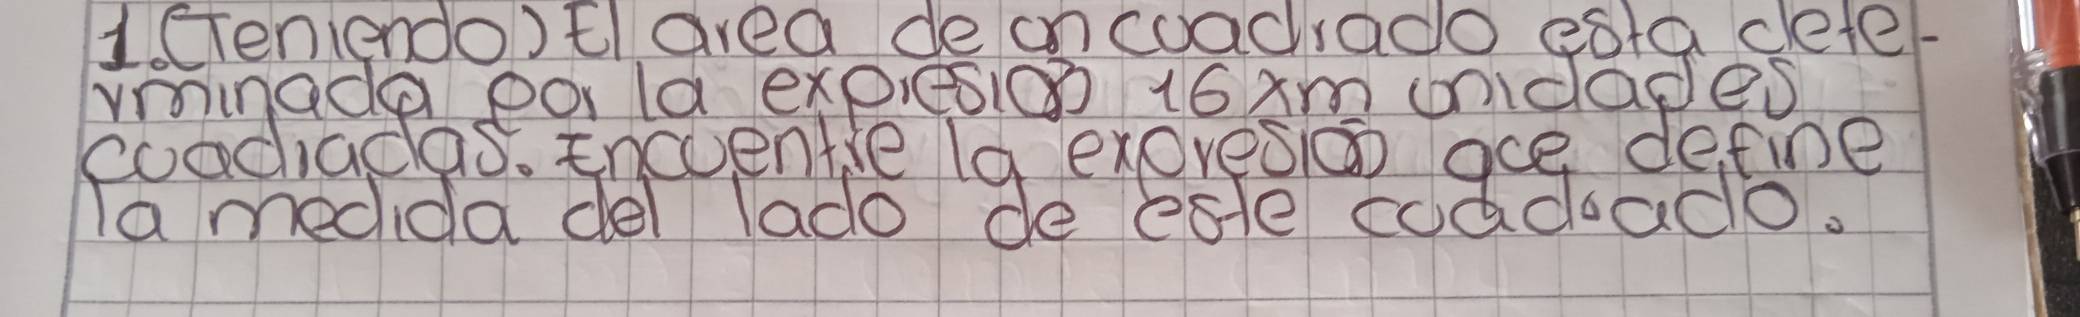 1.(Teniendo) El area de un cuadrado esta dete-
rminada por la expresion 16xm unidades
cuadradas. Encuentre la expresion que define
la medida del lado de este cuadrado.